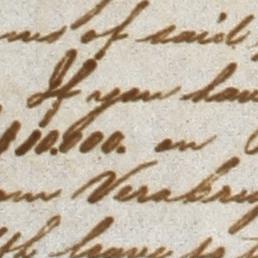 of said
If you hav
$10.000. on
om Verakru
th leave to